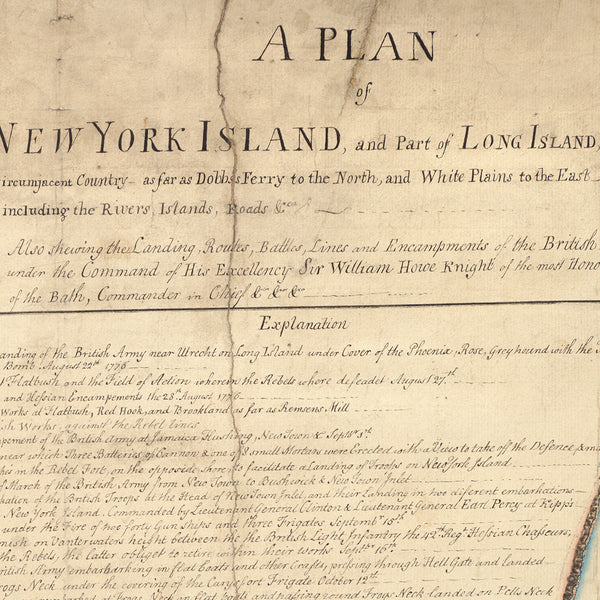 A PLAN
of
NEW YORK ISLAND, and Part of LONG ISLAND,
circumjacent Country as far as Dobbs Ferry to the North, and White Plains to the East
including the Rivers, Islands, Roads &ca
Also shewing the Landing, Routes, Battles, Lines and Encampments of the British
under the Command of His Excellency Sir William Howe Knight of the most Hono
of the Bath, Commander in Chief &ca &ca &ca
Explanation
anding of the British Army near Utrecht on Long Island under Cover of the Phoenix, Rose, Greyhound with the
Bomb. August 22d 1776
Flatbush and the Field of Action wherein the Rebels where defeadet August 27th
and Hessian Encampements the 28 August 1776
Works at Flatbush, Red Hook, and Brookland as far as Remsens Mill
ish Works, against the Rebel Lines
pement of the British Army at Jamaica Flushing, New Town & Septbr 3th
near which Three Batteries of Cannon & one of 8 small Mortars were Erected with a View to take off the Defence
this in the Rebel Fort, on the opposide Shore, to facilitate a Landing of Troops on New York Island
of March of the British Army from New Town to Bushwick & New Town Inlet
kation of the British Troops at the Head of New Town Inlet, and their Landing in two different embarkations
New York Island. Commanded by Lieutenant General Clinton & Lieutenant General Earl Percy at Kepp's
under the Fire of two forty Gun Ships and three Frigates Septemb 15th
mish on Vanterwaters height between the the British Light Infantry the 42th Regt Hessian Chasseurs,
the Rebels, the latter obliget to retire within their Works Septbr 16th
ritish Army embarbarking in flat boats and other Crafts, pressing through Hell Gate and landed
rogs Neck under the covering of the Carysfort Frigate October 12th
Frogs Neck in flat boats and passing round Frogs Neck landed on Pells Neck